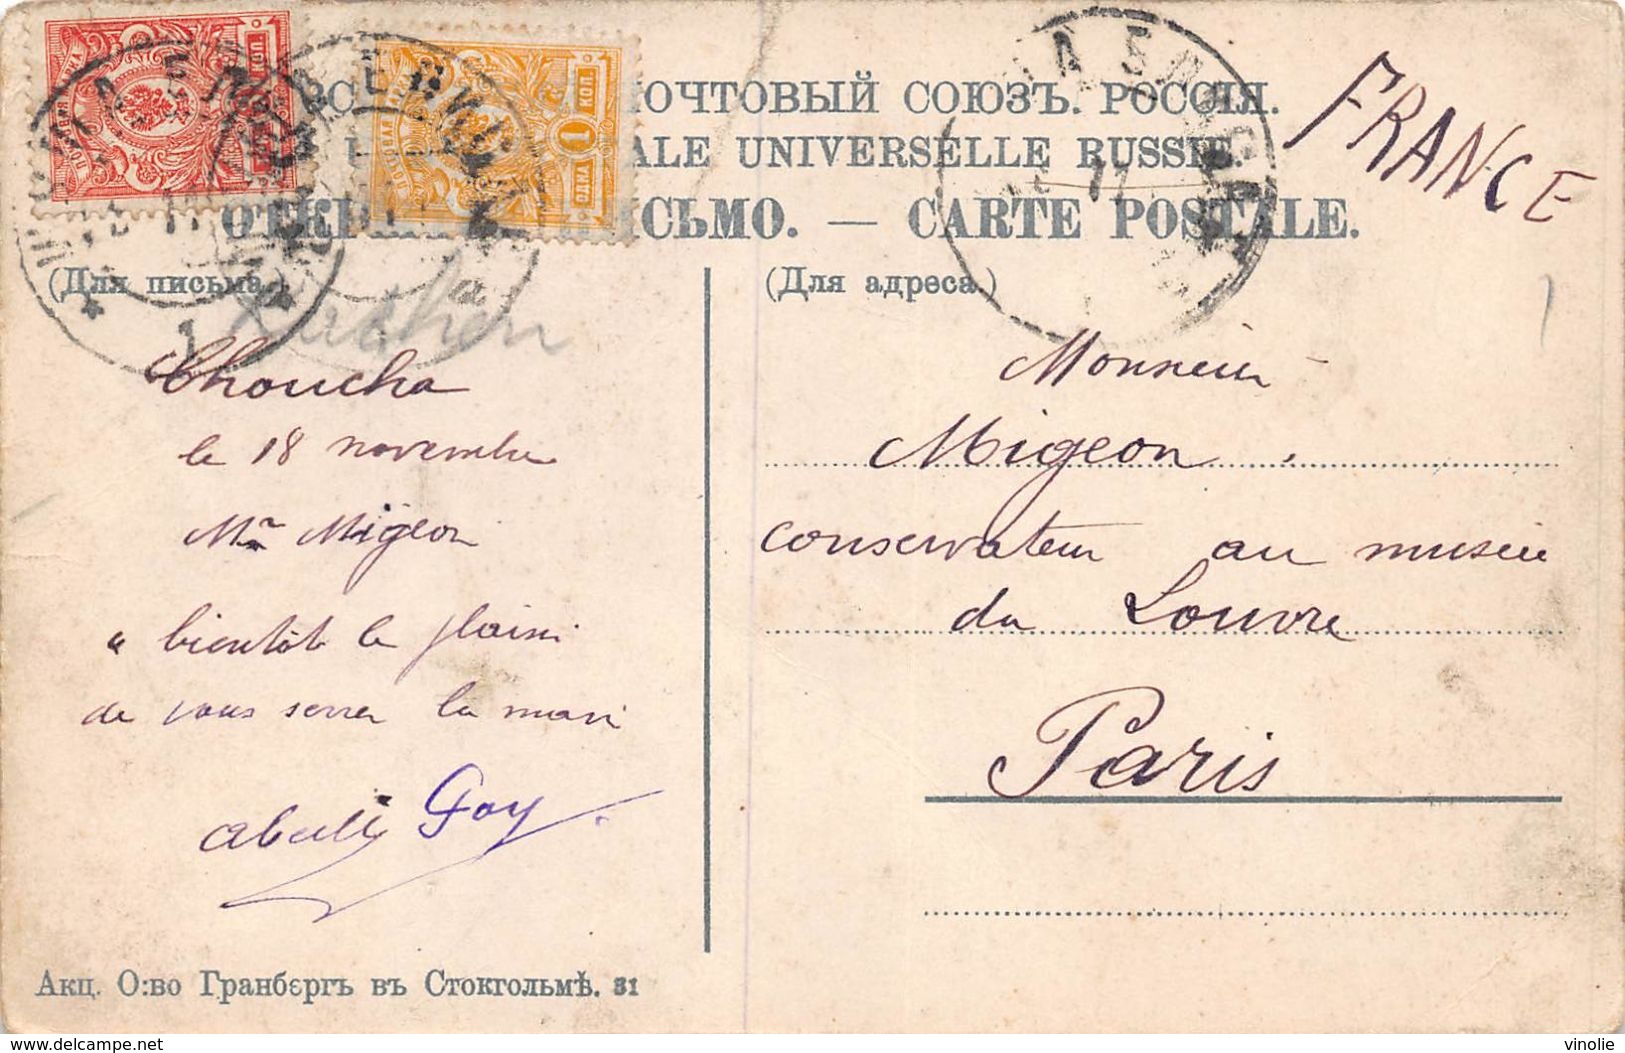 ПОЧТОВЫЙ СОЮЗЪ. РОССІЯ.
UNIVERSELLE RUSSIE.
CARTE POSTALE.
FRANCE
(Для письма.)
(Для адреса.)
Choucha
le 18 novembre
Mr Migeon
a bientôt le plaisir
de vous serrer la main
Monsieur
Migeon
conservateur au musée
du Louvre
Paris
Акц. О:во Гранбергъ въ Стокгольмѣ. 31
delcampe.net
vinolie